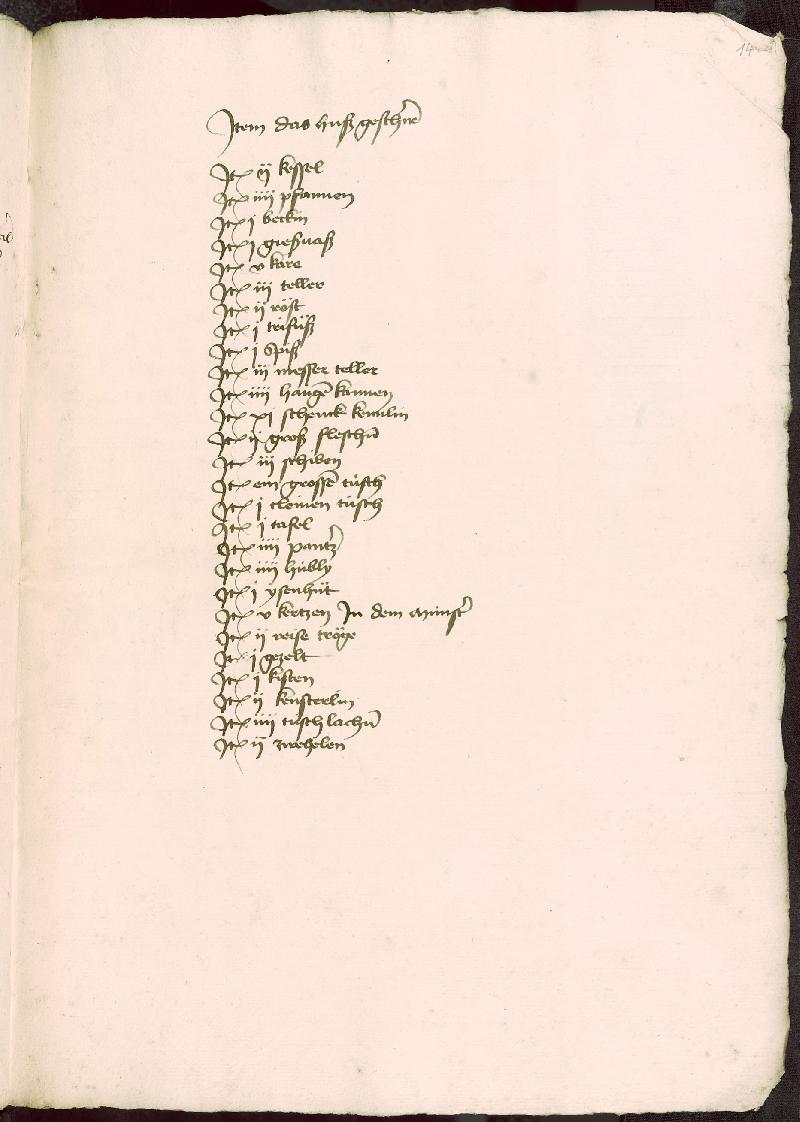 14
Item das husz geschirr
Itẽ ij kessel
Itẽ iiij pfannen
Itẽ j beckin
Itẽ j gieszvasz
Itẽ v kare
Itẽ iij teller
Itẽ ij röst
Itẽ j trifüsz
Itẽ j Spisz
Itẽ iij messer teller
Itẽ iiij hangẽ kannen
Itẽ xj schenck kenulin
Itẽ ij grosz fleschñ
Itẽ iij schiben
Itẽ ein grossẽ tüsch
Itẽ j cleinen tüsch
Itẽ j tafel
Itẽ iiij pantzͬ
Itẽ iiij hübly
Itẽ j ysenhüt
Itẽ v kertzen In dem münstͬ
Itẽ ij reise tröge
Itẽ j gezelt
Itẽ j kisten
Itẽ ij kensterlin
Itẽ iiij tüschlachñ
Itẽ ij zwehelen